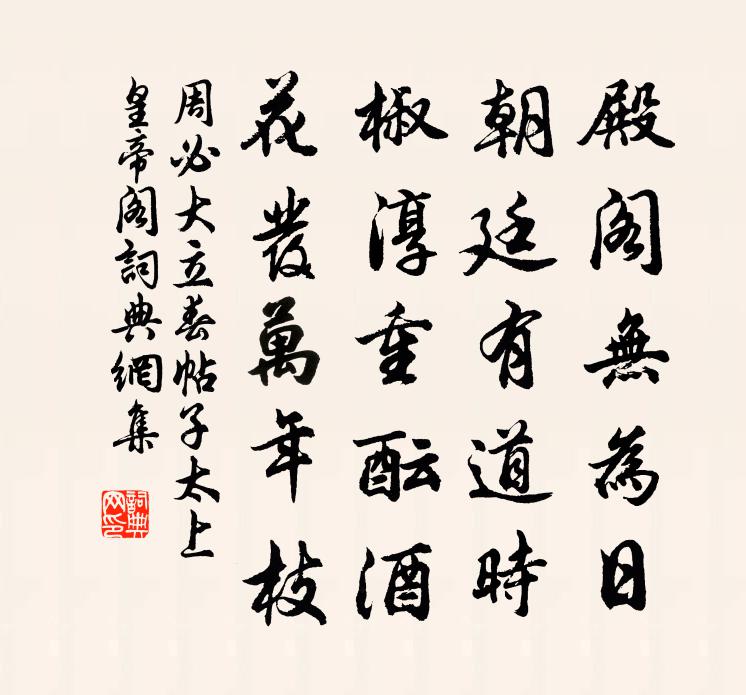 殿閣無為日
朝廷有道時
椒淳重酝酒
花發萬年枝
周必大立春帖子太上
皇帝閣詞典網集
詞典网印